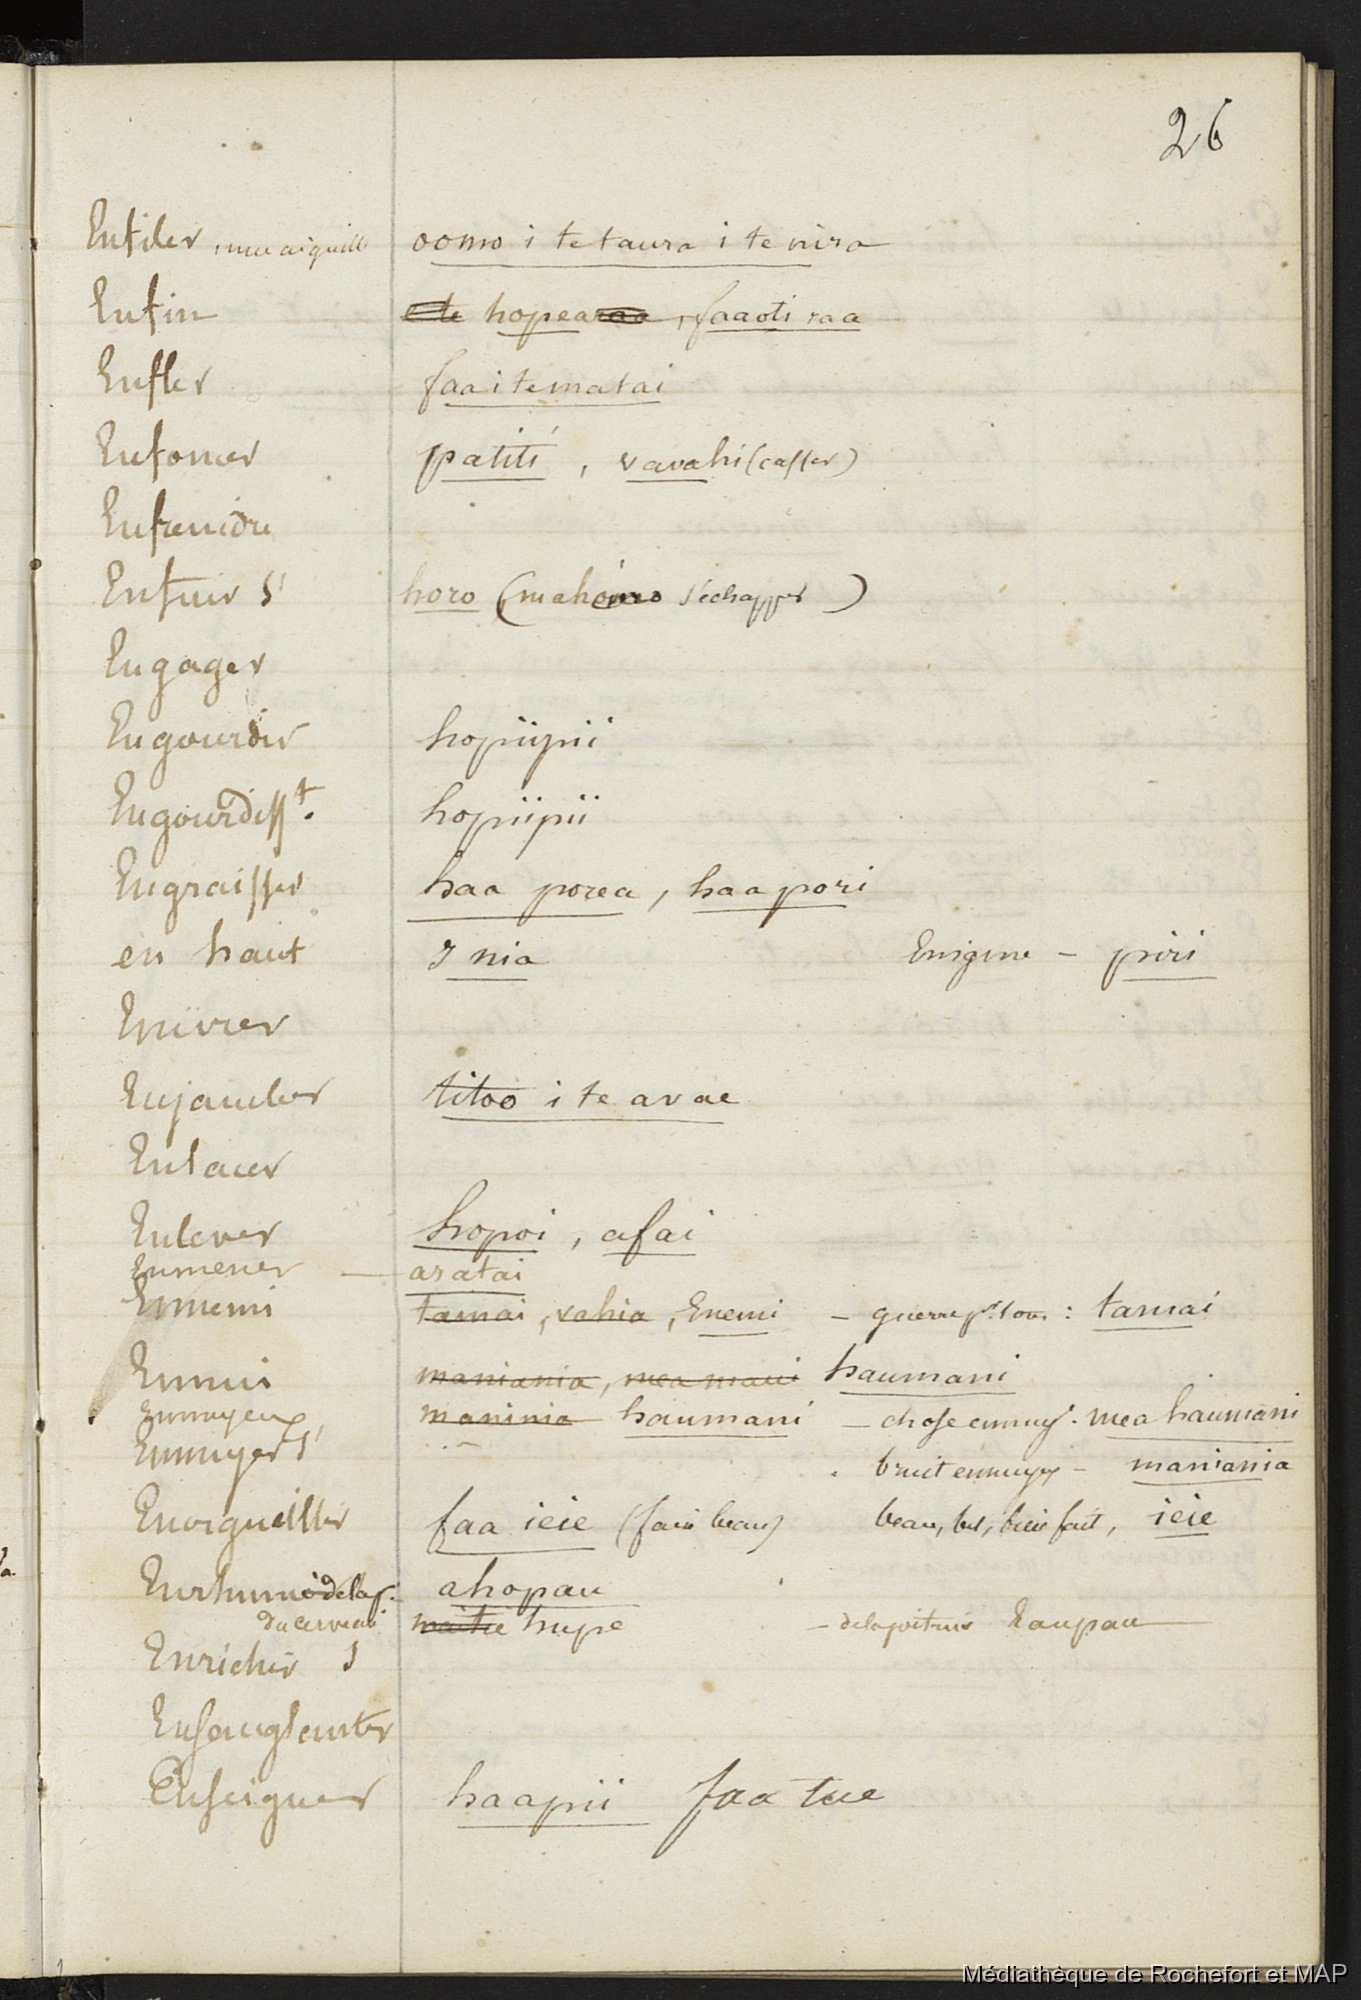 26
Enfiler, une aiguille oomo i te taura i te nira
Enfin e te hopearaa, faaoti raa
Enfler faa i te matai
Enfoncer patiti, vavahi (casser)
Enfreindre
Enfuir s' horo (mahoro s'échapper)
Engager
Engourdir hopiipii
Engourdisst. hopiipii
Engraisser haa porea, haapori
en haut I nia Enigme - piri
Enivrer
Enjamber titoo i te avae
Enlacer
Enlever hopoi, afai
Enmener — aratai
Ennemi tamai, vahia, Enemi - guerre : tamai
Ennui maniania, mea maui haumani
Ennuyeux maninia haumani - chose ennuy. mea haumani
Ennuyer s' bruit ennuyx - maniania
Enorgueillir faa ieie (faire beau) beau, bel, bien fait, ieie
Enrhumé de la p. ahopau
du cerveau hupe - de la poitrine
Enrichir s
Ensanglanter
Enseigner haapii faa tue
Médiathèque de Rochefort et MAP